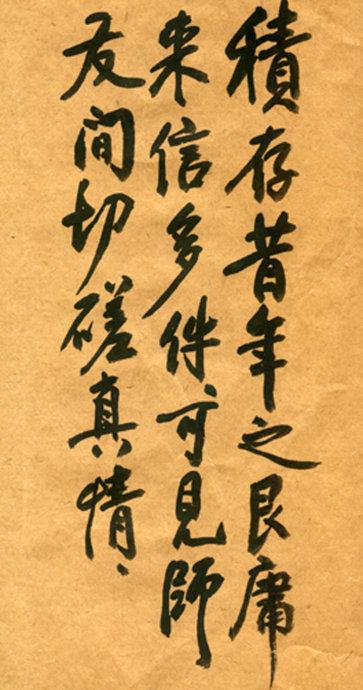 積存昔年之艮庸
来信多件可見師
友间切磋真情、